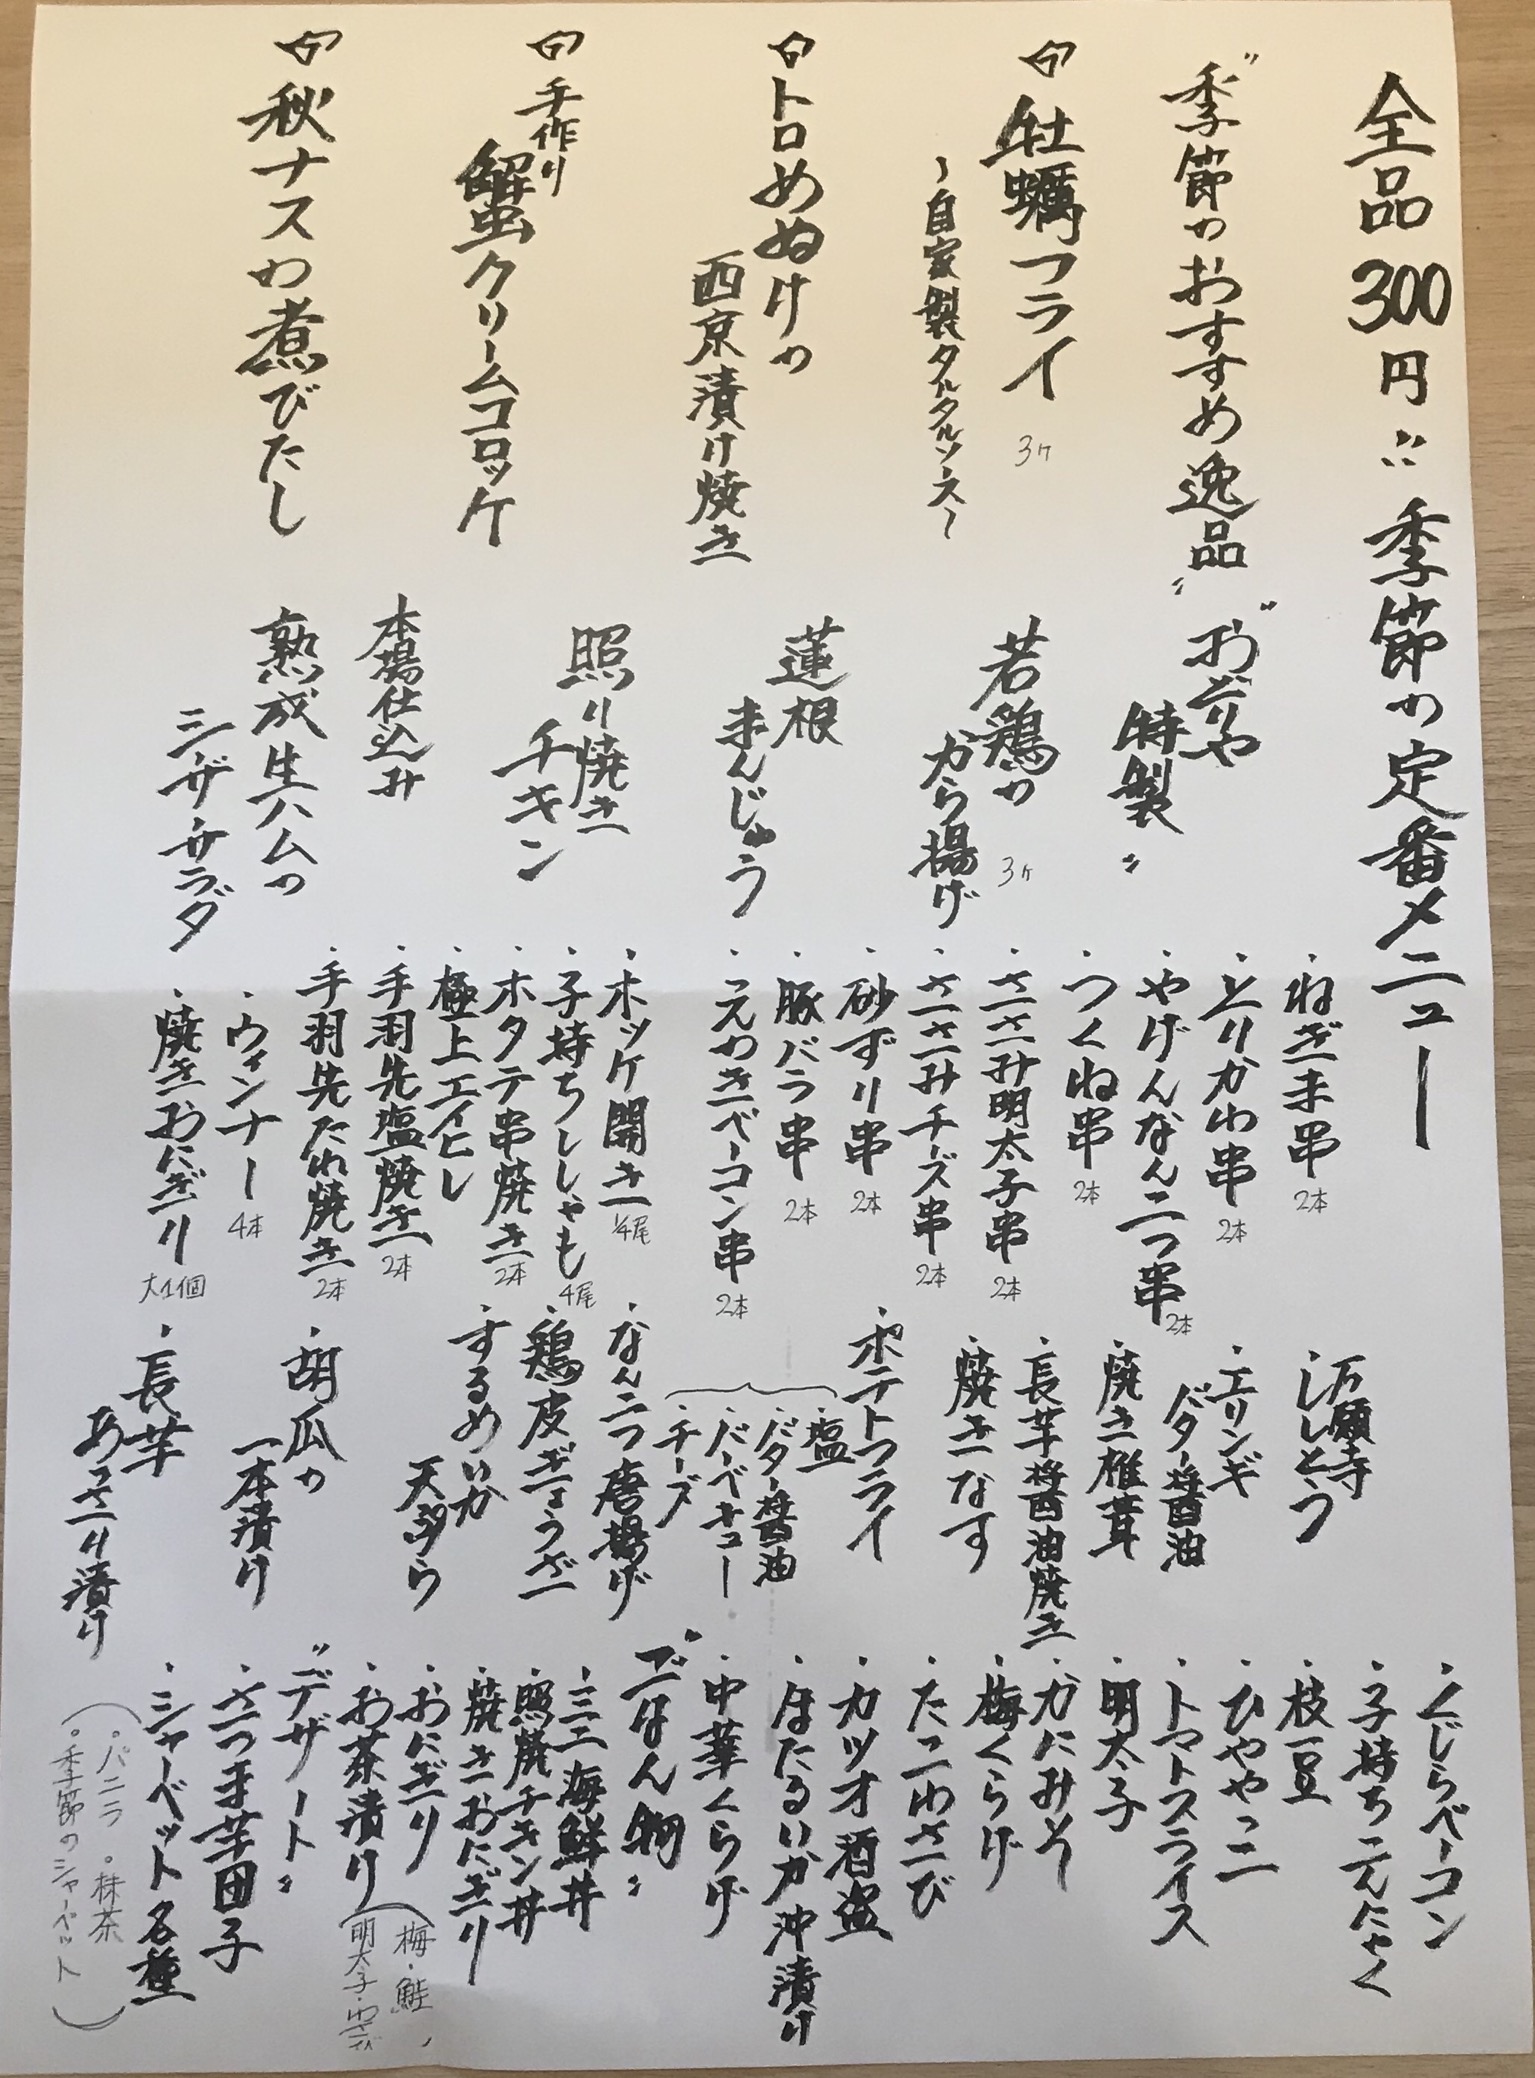 全品300円!! 季節の定番メニュー
"季節のおすすめ逸品"
牡蠣フライ 3ヶ
~自家製タルタルソース~
トロめぬけの
西京漬け焼き
手作り
蟹クリームコロッケ
秋ナスの煮びたし
"おどりや
特製"
若鶏の
から揚げ 3ヶ
蓮根
まんじゅう
照り焼き
チキン
本場仕込み
熟成生ハムの
シーザーサラダ
・ねぎま串 2本
・とりかわ串 2本
・やげんなんこつ串 2本
・つくね串 2本
・ささみ明太子串 2本
・ささみチーズ串 2本
・砂ずり串 2本
・豚バラ串 2本
・えのきベーコン串 2本
・ホッケ開き 1/4尾
・子持ちししゃも 4尾
・ホタテ串焼き 2本
・極上エイヒレ
・手羽先塩焼き 2本
・手羽先たれ焼き 2本
・ウィンナー 4本
・焼きおにぎり 大1個
・万願寺
ししとう
・エリンギ
バター醤油
・焼き椎茸
・長芋醤油焼き
・焼きなす
・ポテトフライ
・塩
・バター醤油
・バーベキュー
・チーズ
・なんこつ唐揚げ
・鶏皮ぎょうざ
・するめいか
天ぷら
・胡瓜の
一本漬け
・長芋
あっさり漬け
・くじらベーコン
・子持ちこんにゃく
・枝豆
・ひややっこ
・トマトスライス
・明太子
・かにみそ
・梅くらげ
・たこわさび
・カツオ酒盗
・ほたるいか沖漬け
・中華くらげ
"ごはん物"
・ミニ海鮮丼
・照焼チキン丼
・焼きおにぎり
・おにぎり
・お茶漬け
(梅・鮭、
明太子・わさび)
"デザート"
・さつま芋団子
・シャーベット各種
(・バニラ ・抹茶
・季節のシャーベット)